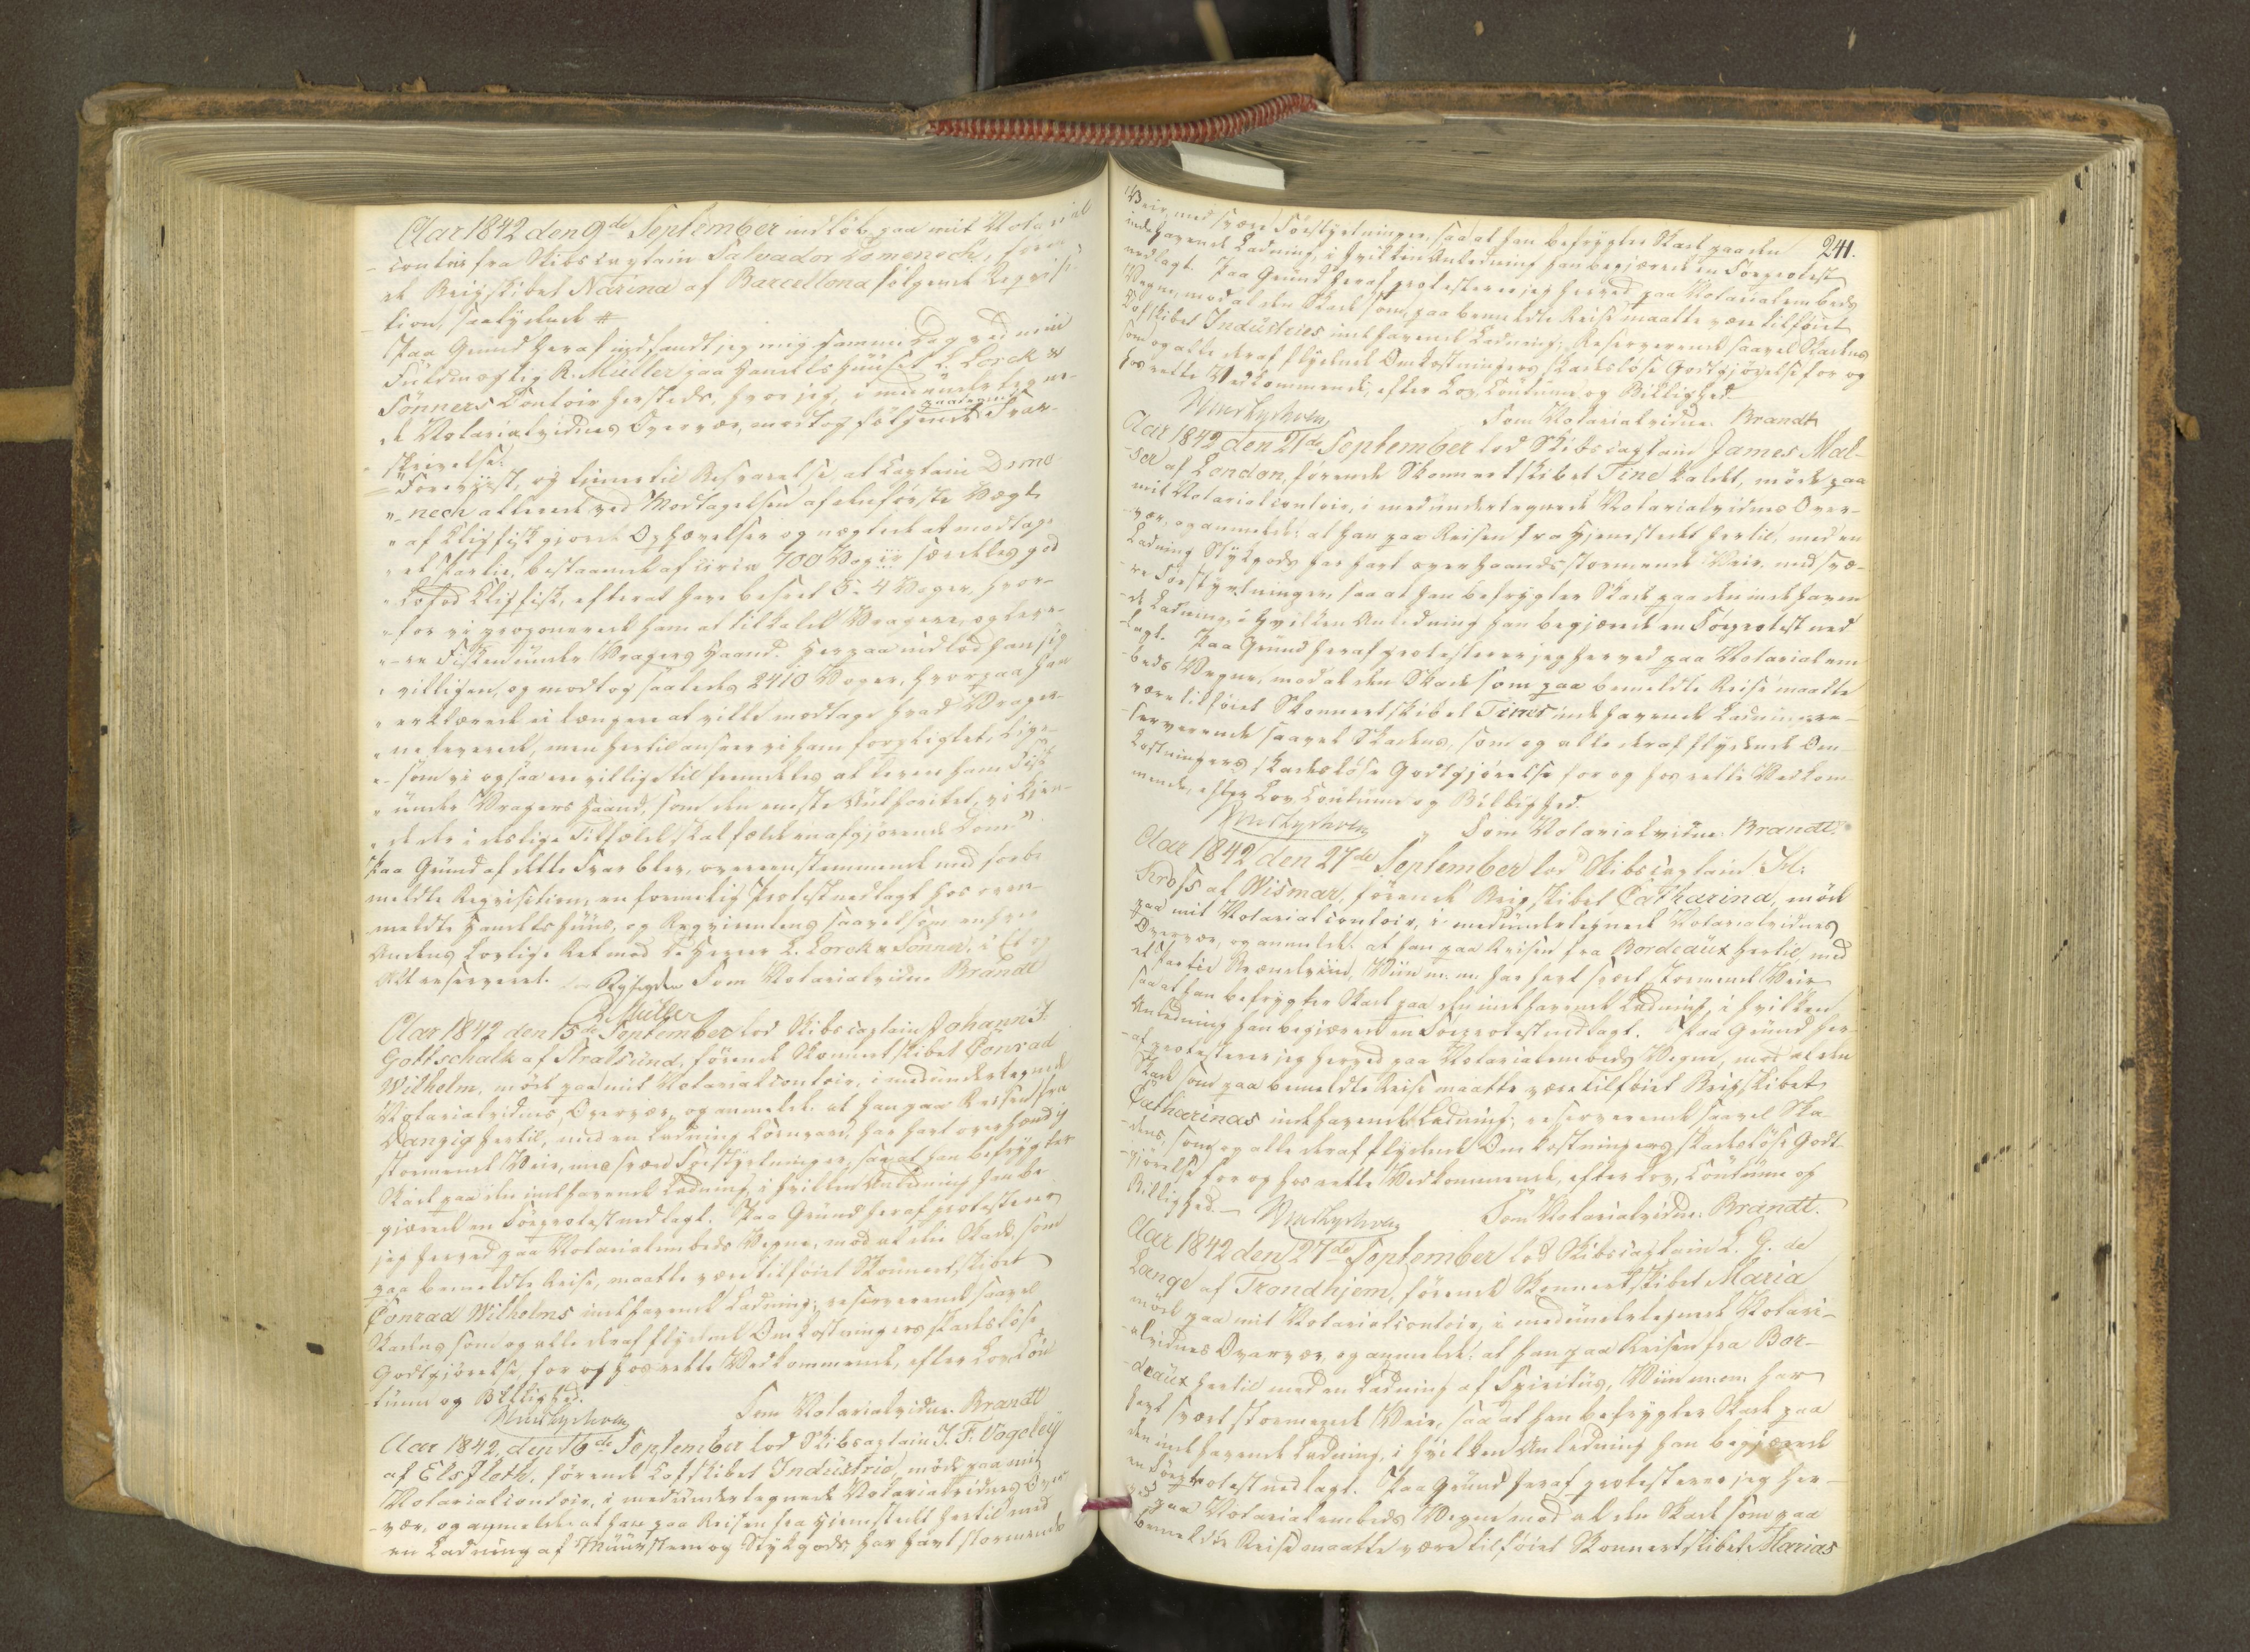 Aar 1842 den 9de September indløb paa mit Notarial
contoir fra Skibscaptain Salvador Domenech, føren
de Brigskibet Narina af Barcellona følgende Reqvisi-
tion, saalydende #
Paa Grund heraf indfandt jeg mig samme Dag ved min
Fuldmægtig R. Müller paa Handelshuuset L. Lorck &
Sønners Contoir hersteds, hvor jeg, i medundertegne-
de Notarialvidnes Overvær, modtog følgende Svar-
skrivelse:
"Foreviist, og tiener til Besvarelse, at Captain Dome-
"nech allerede ved Modtagelsen af den første Vægt
" af Klipfisk gjorde Ophævelser og nægtede at modtage
" et Partie, bestaaende af circa 700 Voger særdeles god
" Lofod Klipfisk, efterat have beseet 3-4 Voger, hvor-
" for vi proponerede ham at tilkalde Vragere, og leve-
" re Fisken under Vragers Haand. Herpaa indlod han sig
" villigen, og modtog saaledes 2410 Voger, hvorpaa han
" erklærede ei længere at ville modtage hvad Vrager-
" ne leverede, men hertil ansaae vi ham forpligtet, lige-
" som vi ogsaa ere villige til fremdeles at levere ham Fisk
" under Vragers Haand, som den eneste Authoritet, vi kjen-
" de der i deslige Tilfælde skal fælde en afgjørende Dom."
Paa Grund af dette Svar blev, overeensstemmende med forbe-
meldte Reqvisition, en formelig Protest nedlagt hos oven-
meldte Handelshuus, og Reqvirentens saavelsom enhver
Andens lovlige Ret mod D'Herrer L. Lorck & Sønner, i Et og
Alt reserveret. Som Notarialvidne Brandt
R Müller
Aar 1842 den 15de September lod Skibscaptain Johann F.
Gottschalk af Stralsund, førende Skonnertskibet Conrad
Wilhelm, møde paa mit Notarialcontoir, i medundertegnede
Notarialvidnes Overvær, og anmelde: at han paa Reisen fra
Danzig hertil, med en Ladning Kornvarer, har havt overhændig
stormende Veir, med svære Søestyrtninger, saa at han befrygter
Skade paa den indehavende Ladning, i hvilken Anledning han be-
gjærede en Søeprotest nedlagt. Paa Grund heraf protesterer
jeg herved paa Notarialembeds Vegne, mod al den Skade, som
paa bemeldte Reise, maatte være tilføiet Skonnertskibet
Conrad Wilhelms indehavende Ladning; reserverende saavel
Skadens som og alle deraf flydende Omkostningers skadesløse
Godtgjørelse, for og hos rette Vedkommende, efter Lov, Cou-
tume og Billighed.
Som Notarialvidne: Brandt
Aar 1842, den 16de September lod Skibscaptain J. F. Vogeley
af Elsfleth, førende Kofskibet Industrie, møde paa mit
Notarialcontoir, i medundertegnede Notarialvidnes Over-
vær, og anmelde: at han paa Reisen fra Hjemstedet hertil med
en Ladning af Muursteen og Stykgods, har havt stormende
241.
Veir, med svære Søestyrtninger, saa at han befrygter Skade paa den
indehavende Ladning, i hvilken Anledning han begjærede en Søeprotest
nedlagt. Paa Grund heraf protesterer jeg herved paa Notarialembeds
Vegne, mod al den Skade som paa bemeldte Reise maatte være tilføiet
Kofskibet Industries indehavende Ladning; Reserverende saavel Skadens
som og alle deraf flydende Omkostningers skadesløse Godtgjørelse for og
hos rette Vedkommende, efter Lov, Coutume og Billighed.
Som Notarialvidne: Brandt
Aar 1842 den 21de September lod Skibscaptain James Mal-
ser af London, førende Skonnertskibet Tine kaldet, møde paa
mit Notarialcontoir, i medundertegnede Notarialvidnes Over-
vær, og anmelde: at han paa Reisen fra Hjemstedet hertil, med en
Ladning Stykgods har havt overhaands stormende Veir, med svæ-
re Søestyrtninger, saa at han befrygter Skade paa den indehaven
de Ladning, i hvilken Anledning han begjærede en Søeprotest ned
lagt. Paa Grund heraf protesterer jeg herved paa Notarialem
beds Vegne, mod al den Skade som paa bemeldte Reise maatte
være tilføiet Skonnertskibet Tines indehavende Ladning re-
serverende saavel Skadens, som og alle deraf flydende Om
kostningers skadesløse Godtgjørelse for og hos rette Vedkom-
mende, efter Lov, Coutume og Billighed.
Som Notarialvidne: Brandt.
Aar 1842 den 27de September lod Skibscaptain H:
Kross af Wismar, førende Brigskibet Catharina, møde
paa mit Notarialcontoir, i medundertegnede Notarialvidnes
Overvær, og anmelde: at han paa Reisen fra Bordeaux hertil, med
et Partie Brændeviin, Viin m. m. har havt svært stormende Veir
saa at han befrygter Skade paa den indehavende Ladning, i hvilken
Anledning han begjærede en Søeprotest nedlagt. Paa Grund her-
af protesterer jeg herved paa Notarialembeds Vegne, mod al den
Skade som paa bemeldte Reise maatte være tilføiet Brigskibet
Catharinas indehavende Ladning; reserverende saavel Ska-
dens, som og alle deraf flydende Omkostningers skadesløse Godt-
gjørelse for og hos rette Vedkommende, efter Lov, Coutume og
Billighed. Som Notarialvidne: Brandt.
Aar 1842 den 27de September lod Skibscaptain L. G. de
Lange af Trondhjem, førende Skonnertskibet Maria
møde paa mit Notarialcontoir, i medundertegnede Notari-
alvidnes Overvær, og anmelde: at han paa Reisen fra Bor-
deaux hertil med en Ladning af Spiritus, Viin m: m: har
havt svært stormende Veir, saa at han befrygter Skade paa
den indehavende Ladning, i hvilken Anledning han begjærede
en Søeprotest nedlagt. Paa Grund heraf protesterer jeg her-
ved paa Notarialembeds Vegne mod al den Skade som paa
bemeldte Reise maatte være tilføiet Skonnertskibet Marias